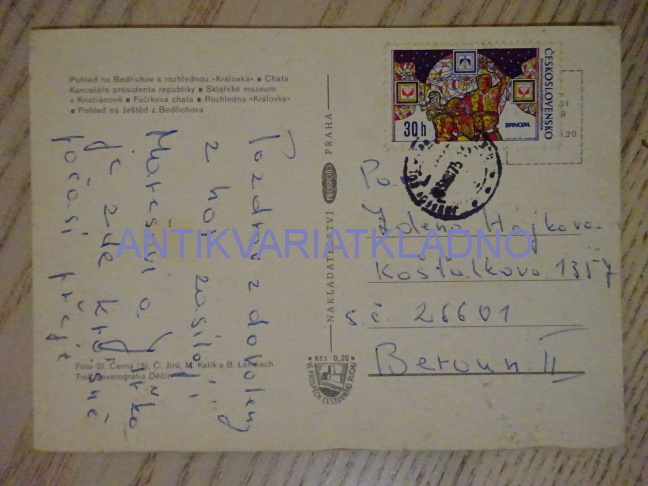 Pohled na Bedřichov s rozhlednou «Královka» ● Chata
Kanceláře presidenta republiky ● Sklářské muzeum
v Kristiánově ● Fučíkova chata ● Rozhledna «Královka»
● Pohled na Ještěd z Bedřichova
Pozdrav z dovolený
z hor zasílají
Marešovi a Jirka
je zde krásně
počasí přeje
Foto Sl. Černý (3), Č. Jírů, M. Kalík a B. Landisch
Tisk Severografia Děčín
NAKLADATELSTVÍ PRESSFOTO PRAHA
ČESKOSLOVENSKO
30h
BRNO 74
Kčs 0,20
Zdena Hájkova
Košťálkova 1357
s.č. 26601
Beroun II
ANTIKVARIATKLADNO